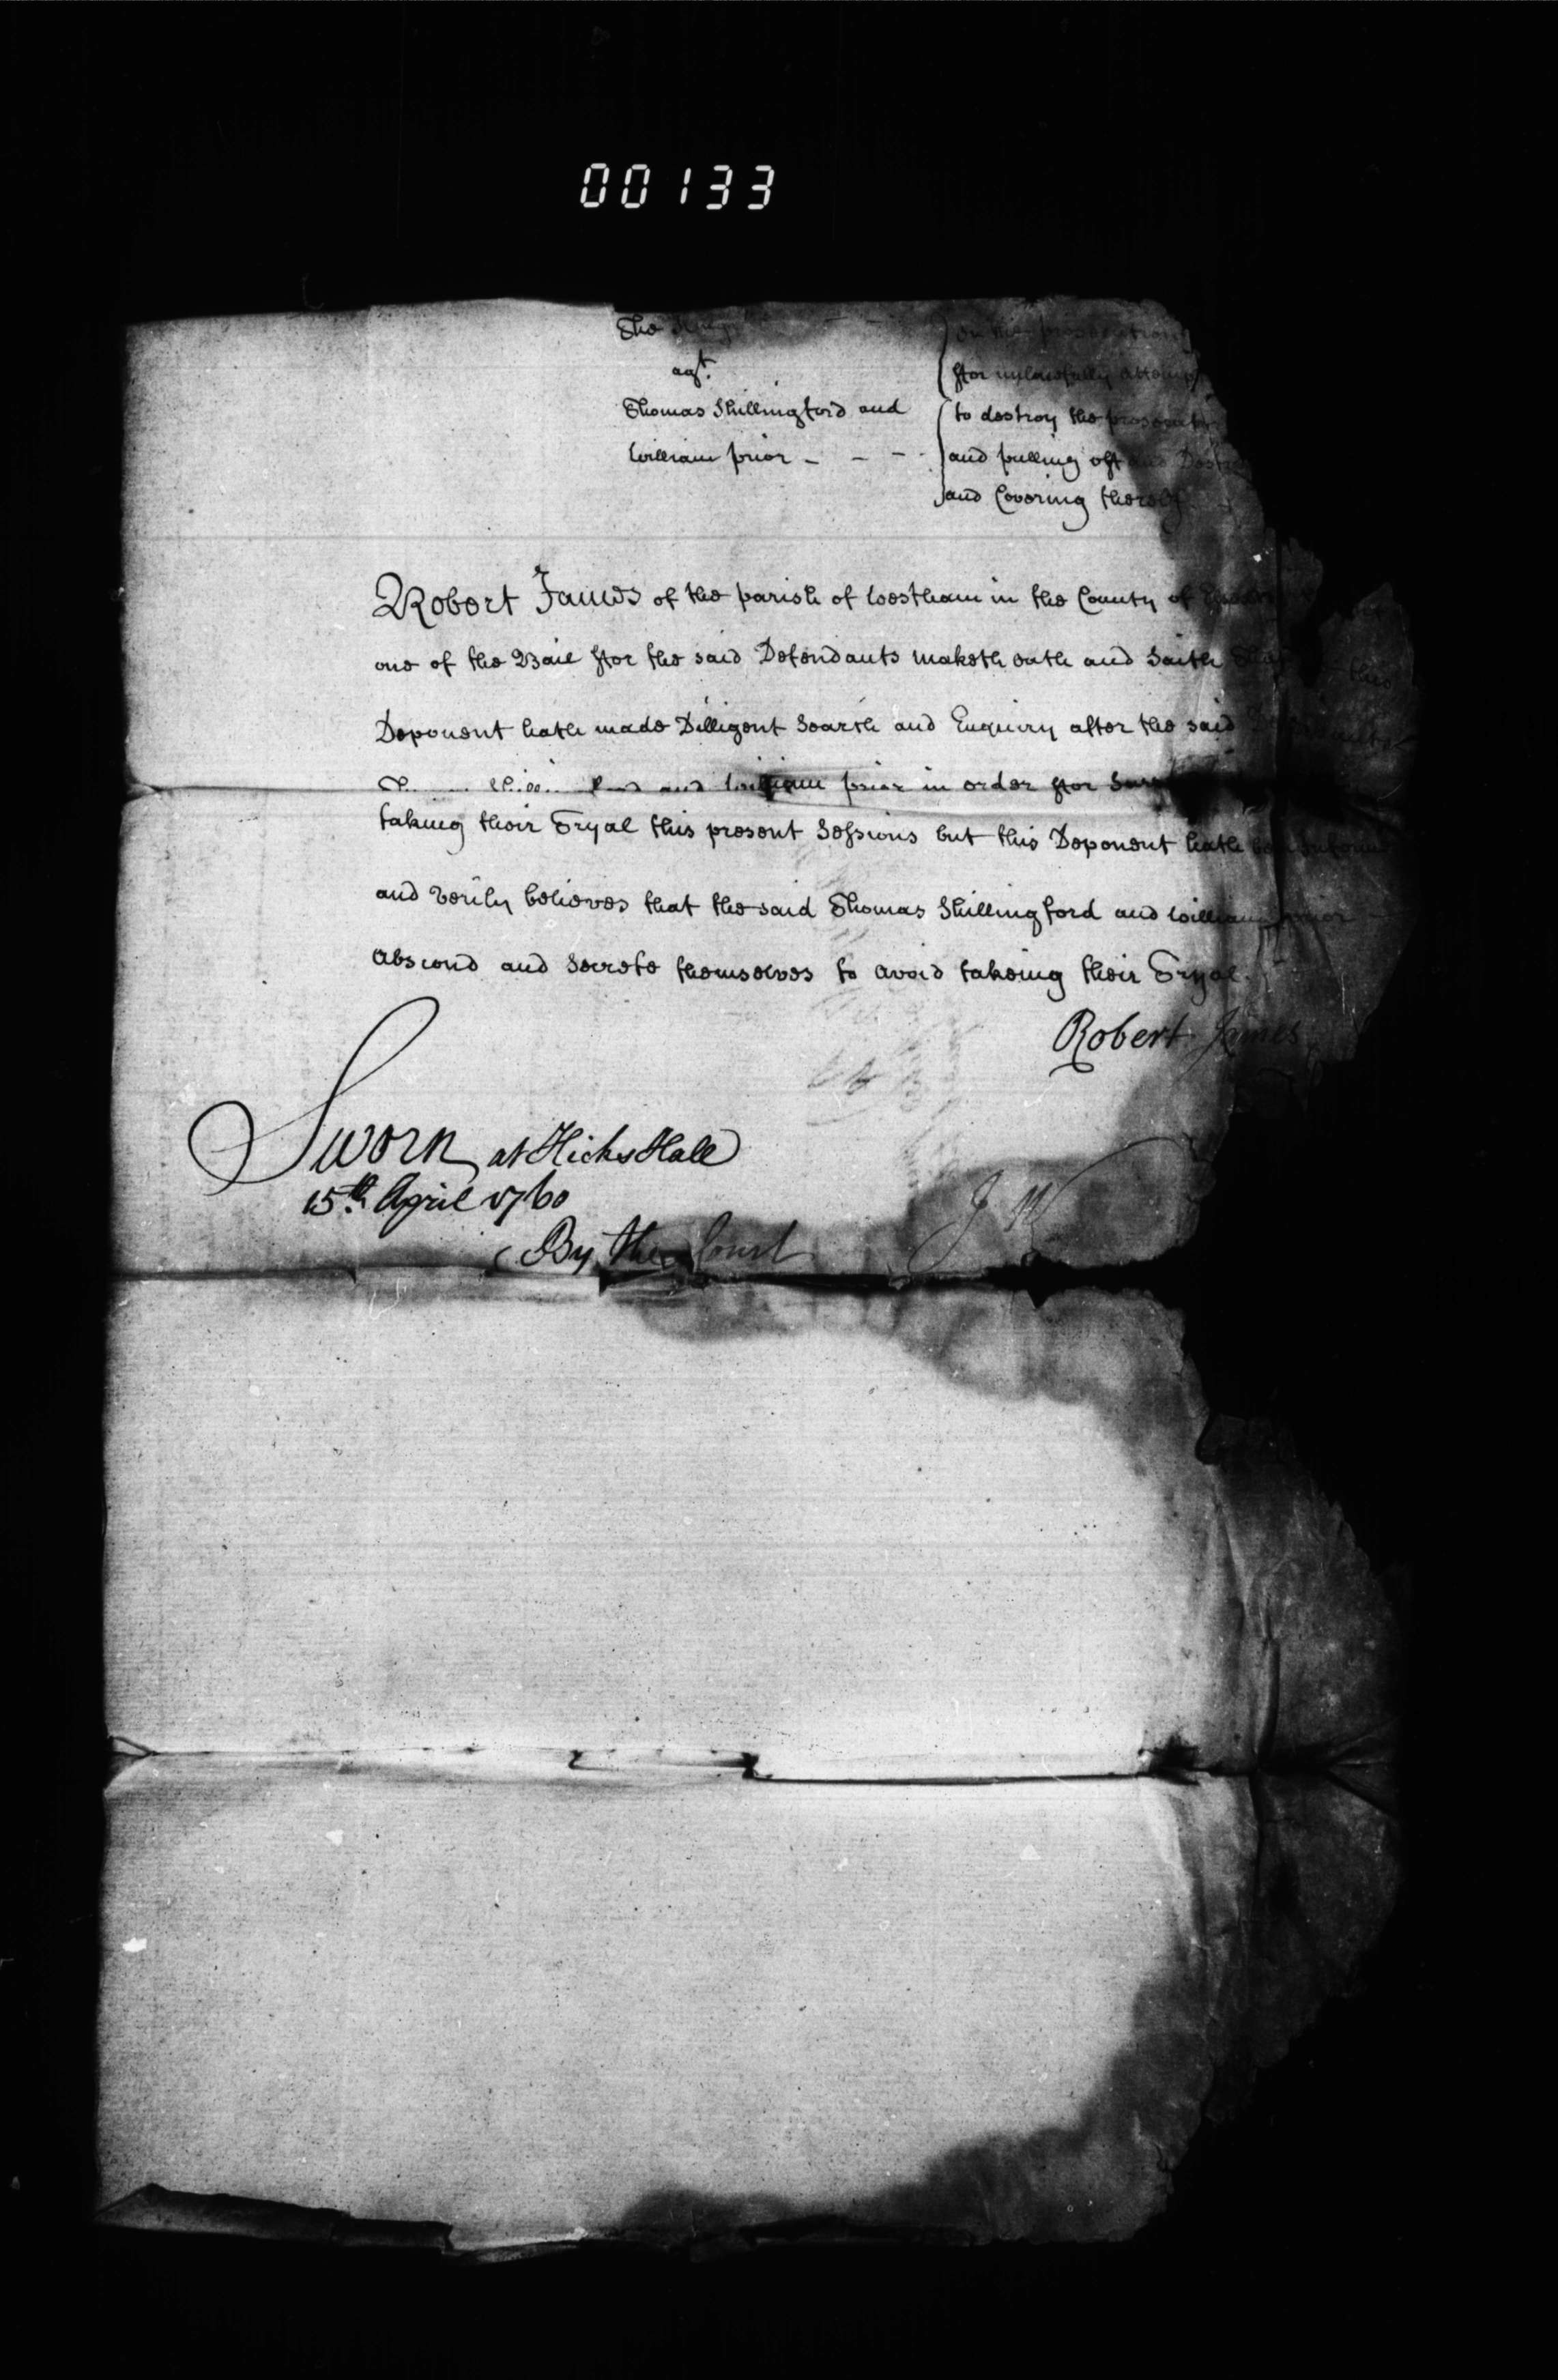 00133
The King
agt.
Thomas Shillingford and
William prior - - - -
on the prosecution
ffor unlawfully attempt
to destroy the prosecut
and pulling off and Dest
and Covering thereof
Robert James of the parish of Westham in the County of Essex
one of the Bail ffor the said Defendants maketh oath and Saith That this
Deponent hath made Dilligent Search and Enquiry after the said
and William prior in order ffor
taking their Tryal this present Sessions but this Deponent hath been Inform
and verily believes that the said Thomas Shillingford and William prior -
abscond and Secrete themselves to avoid takeing their Tryal.
Robert James
Sworn at Hicks Hall
15th. April 1760
By the Court